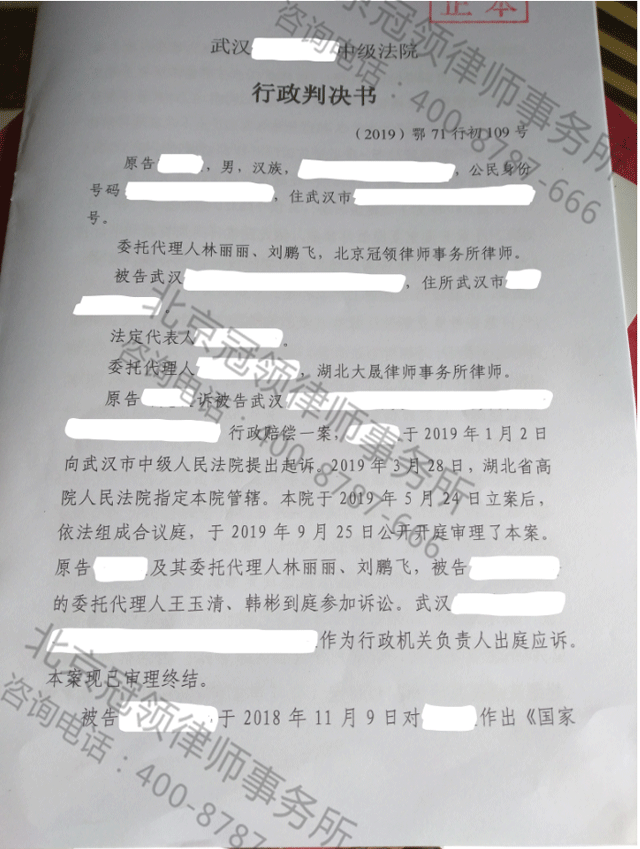 正本
武汉 中级法院
行政判决书
（2019）鄂 71 行初 109 号
原告 ，男，汉族， ，公民身份
号码 ，住武汉市
号。
委托代理人林丽丽、刘鹏飞，北京冠领律师事务所律师。
被告武汉 ，住所武汉市
法定代表人 。
委托代理人 ，湖北大晟律师事务所律师。
原告 诉被告武汉
行政赔偿一案， 于 2019 年 1 月 2 日
向武汉市中级人民法院提出起诉。2019 年 3 月 28 日，湖北省高
院人民法院指定本院管辖。本院于 2019 年 5 月 24 日立案后，
依法组成合议庭，于 2019 年 9 月 25 日公开开庭审理了本案。
原告 及其委托代理人林丽丽、刘鹏飞，被告
的委托代理人王玉清、韩彬到庭参加诉讼。武汉
作为行政机关负责人出庭应诉。
本案现已审理终结。
被告 于 2018 年 11 月 9 日对 作出《国家
北京冠领律师事务所
咨询电话：400-8787-666
北京冠领律师事务所
咨询电话：400-8787-666
北京冠领律师事务所
咨询电话：400-8787